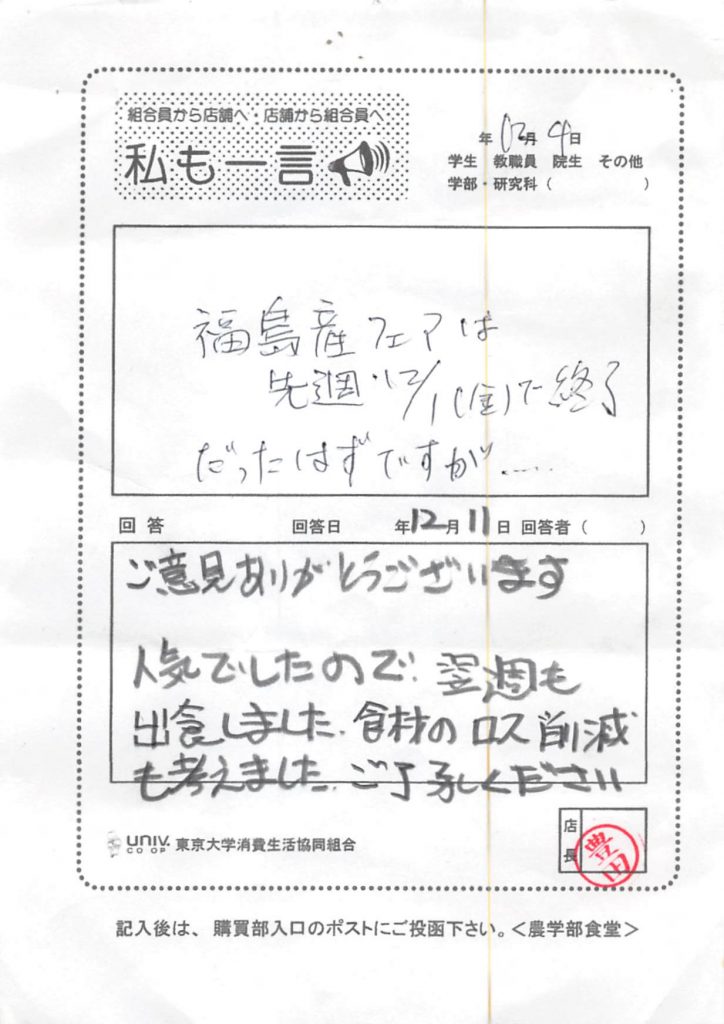 組合員から店舗へ・店舗から組合員へ
私も一言
年12月4日
学生 教職員 院生 その他
学部・研究科( )
福島産フェアは
先週12/1(金)で終了
だったはずですが……
回答 回答日 年12月11日 回答者( )
ご意見ありがとうございます
人気でしたので、翌週も
出食しました。食材のロス削減
も考えました。ご了承ください
UNIV.
CO-OP 東京大学消費生活協同組合
店長
豊田
記入後は、購買部入口のポストにご投函下さい。<農学部食堂>